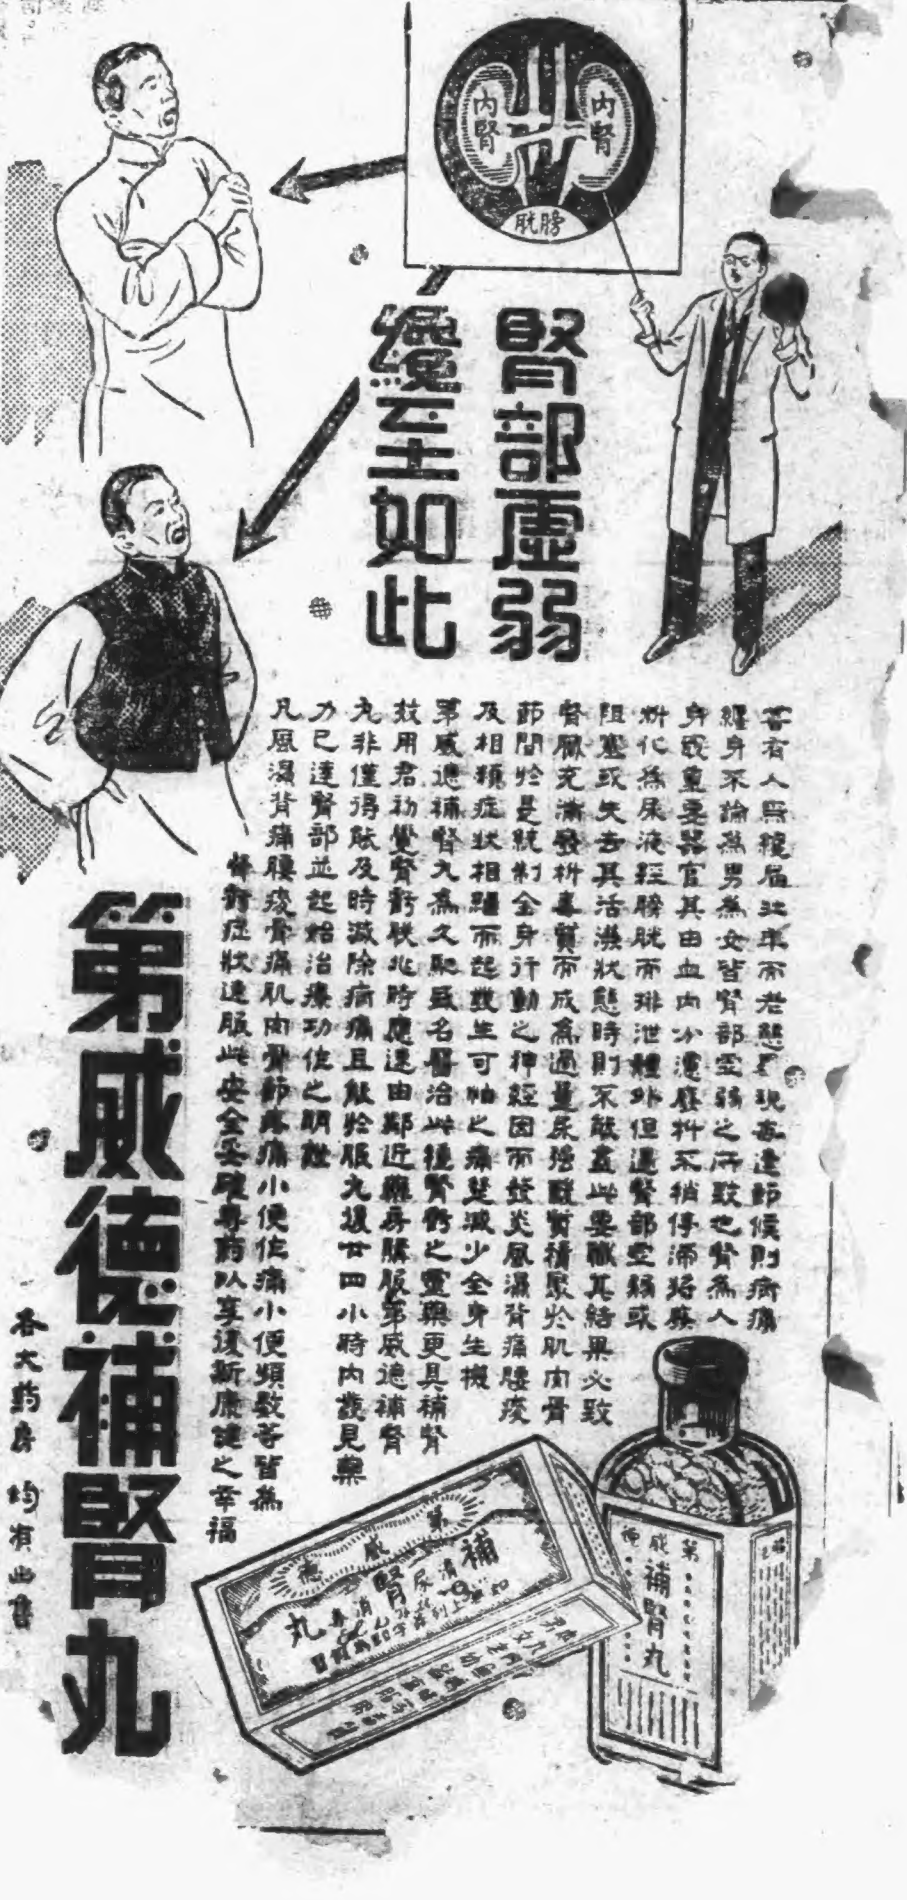 內腎
內腎
膀胱
腎部虛弱
纔至如此
若有人無縷屆壯年而老態呈現每逢節候則病痛
纏身不論為男為女皆腎部空弱之所致也腎為人
身最重要器官其由血內分濾廢料不稍停滯將廢
料化為尿液經膀胱而排泄體外但遇腎部空弱或
阻塞或失去其活潑狀態時則不能盡此要職其結果必致
腎臟充滿發料毒質而成為過量尿強酸質積聚於肌肉骨
節間於是統制全身行動之神經因而發炎風濕背痛腰痠
及相類症狀相繼而起發生可怕之痛楚減少全身生機
第威德補腎丸為久馳盛名醫治此種腎虧之靈藥更具補腎
效用君初覺腎虧朕兆時應速由鄰近藥房購服第威德補腎
丸非僅得能及時滅除病痛且能於服丸後廿四小時內證見藥
力已達腎部並起始治療功能之明證
凡風濕背痛腰痠骨痛肌肉骨節疼痛小便作痛小便頻數等皆為
腎虧症狀速服此安全妥確專藥以享復斯康健之幸福
第威德補腎丸
各大藥房 均有出售
第威德
補腎丸
第威德
補腎丸